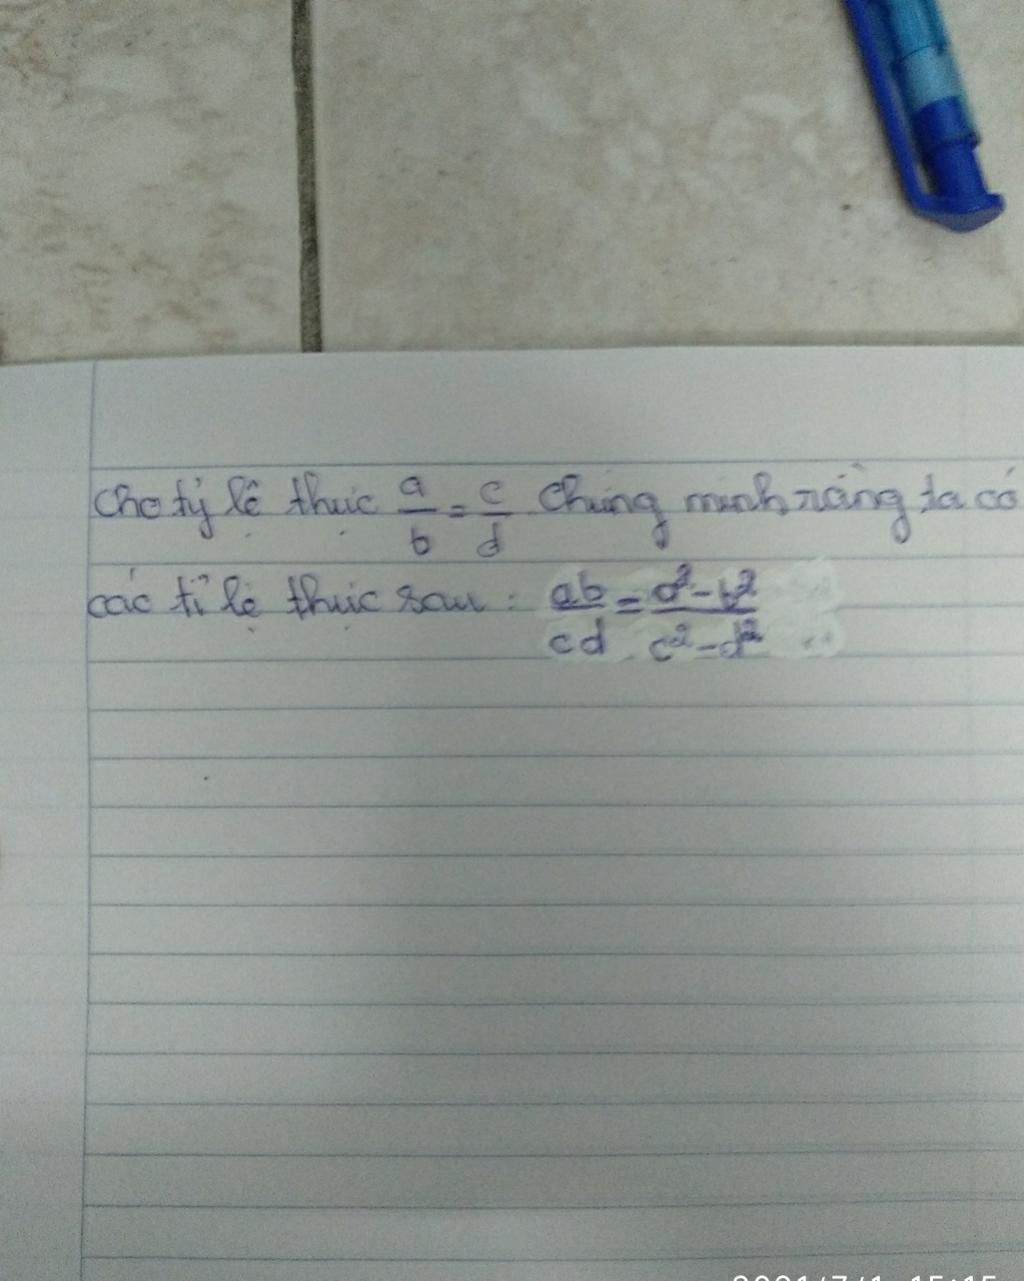 Cho tỷ lệ thức a/b = c/d Chứng minh rằng ta có
các tỉ lệ thức sau : ab/cd = a²-b²/c²-d²